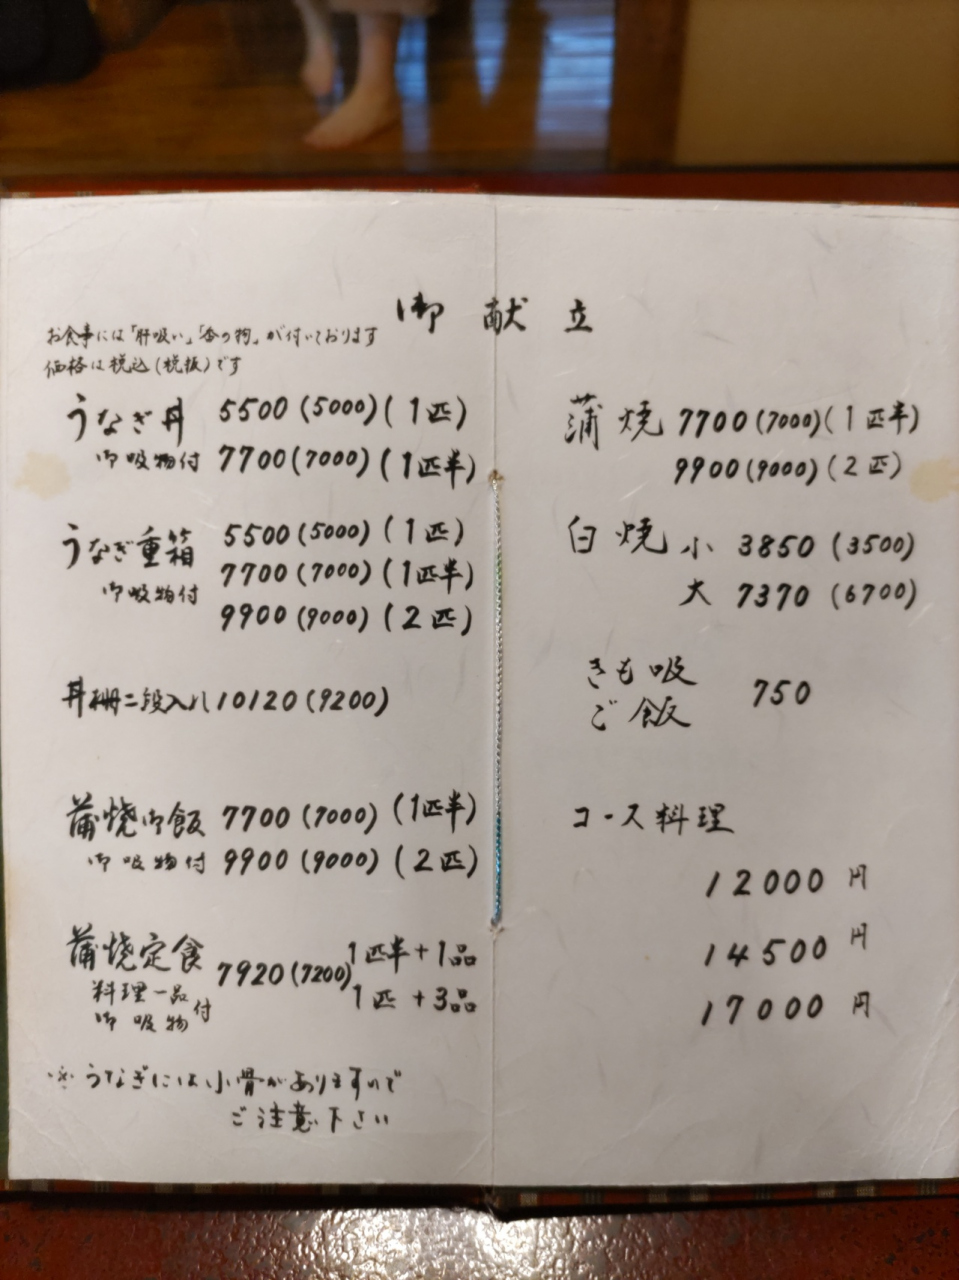 御献立
お食事には「肝吸い」「香の物」が付いております
価格は税込(税抜)です
うなぎ丼 5500(5000)(1匹)
御吸物付 7700(7000)(1匹半)
うなぎ重箱 5500(5000)(1匹)
御吸物付 7700(7000)(1匹半)
9900(9000)(2匹)
丼柵二段入り 10120(9200)
蒲焼御飯 7700(7000)(1匹半)
御吸物付 9900(9000)(2匹)
蒲焼定食 7920(7200) 1匹半+1品
料理一品 1匹+3品
御吸物付
※うなぎには小骨がありますので
ご注意下さい
蒲焼 7700(7000)(1匹半)
9900(9000)(2匹)
白焼 小 3850(3500)
大 7370(6700)
きも吸
ご飯 750
コース料理
12000円
14500円
17000円